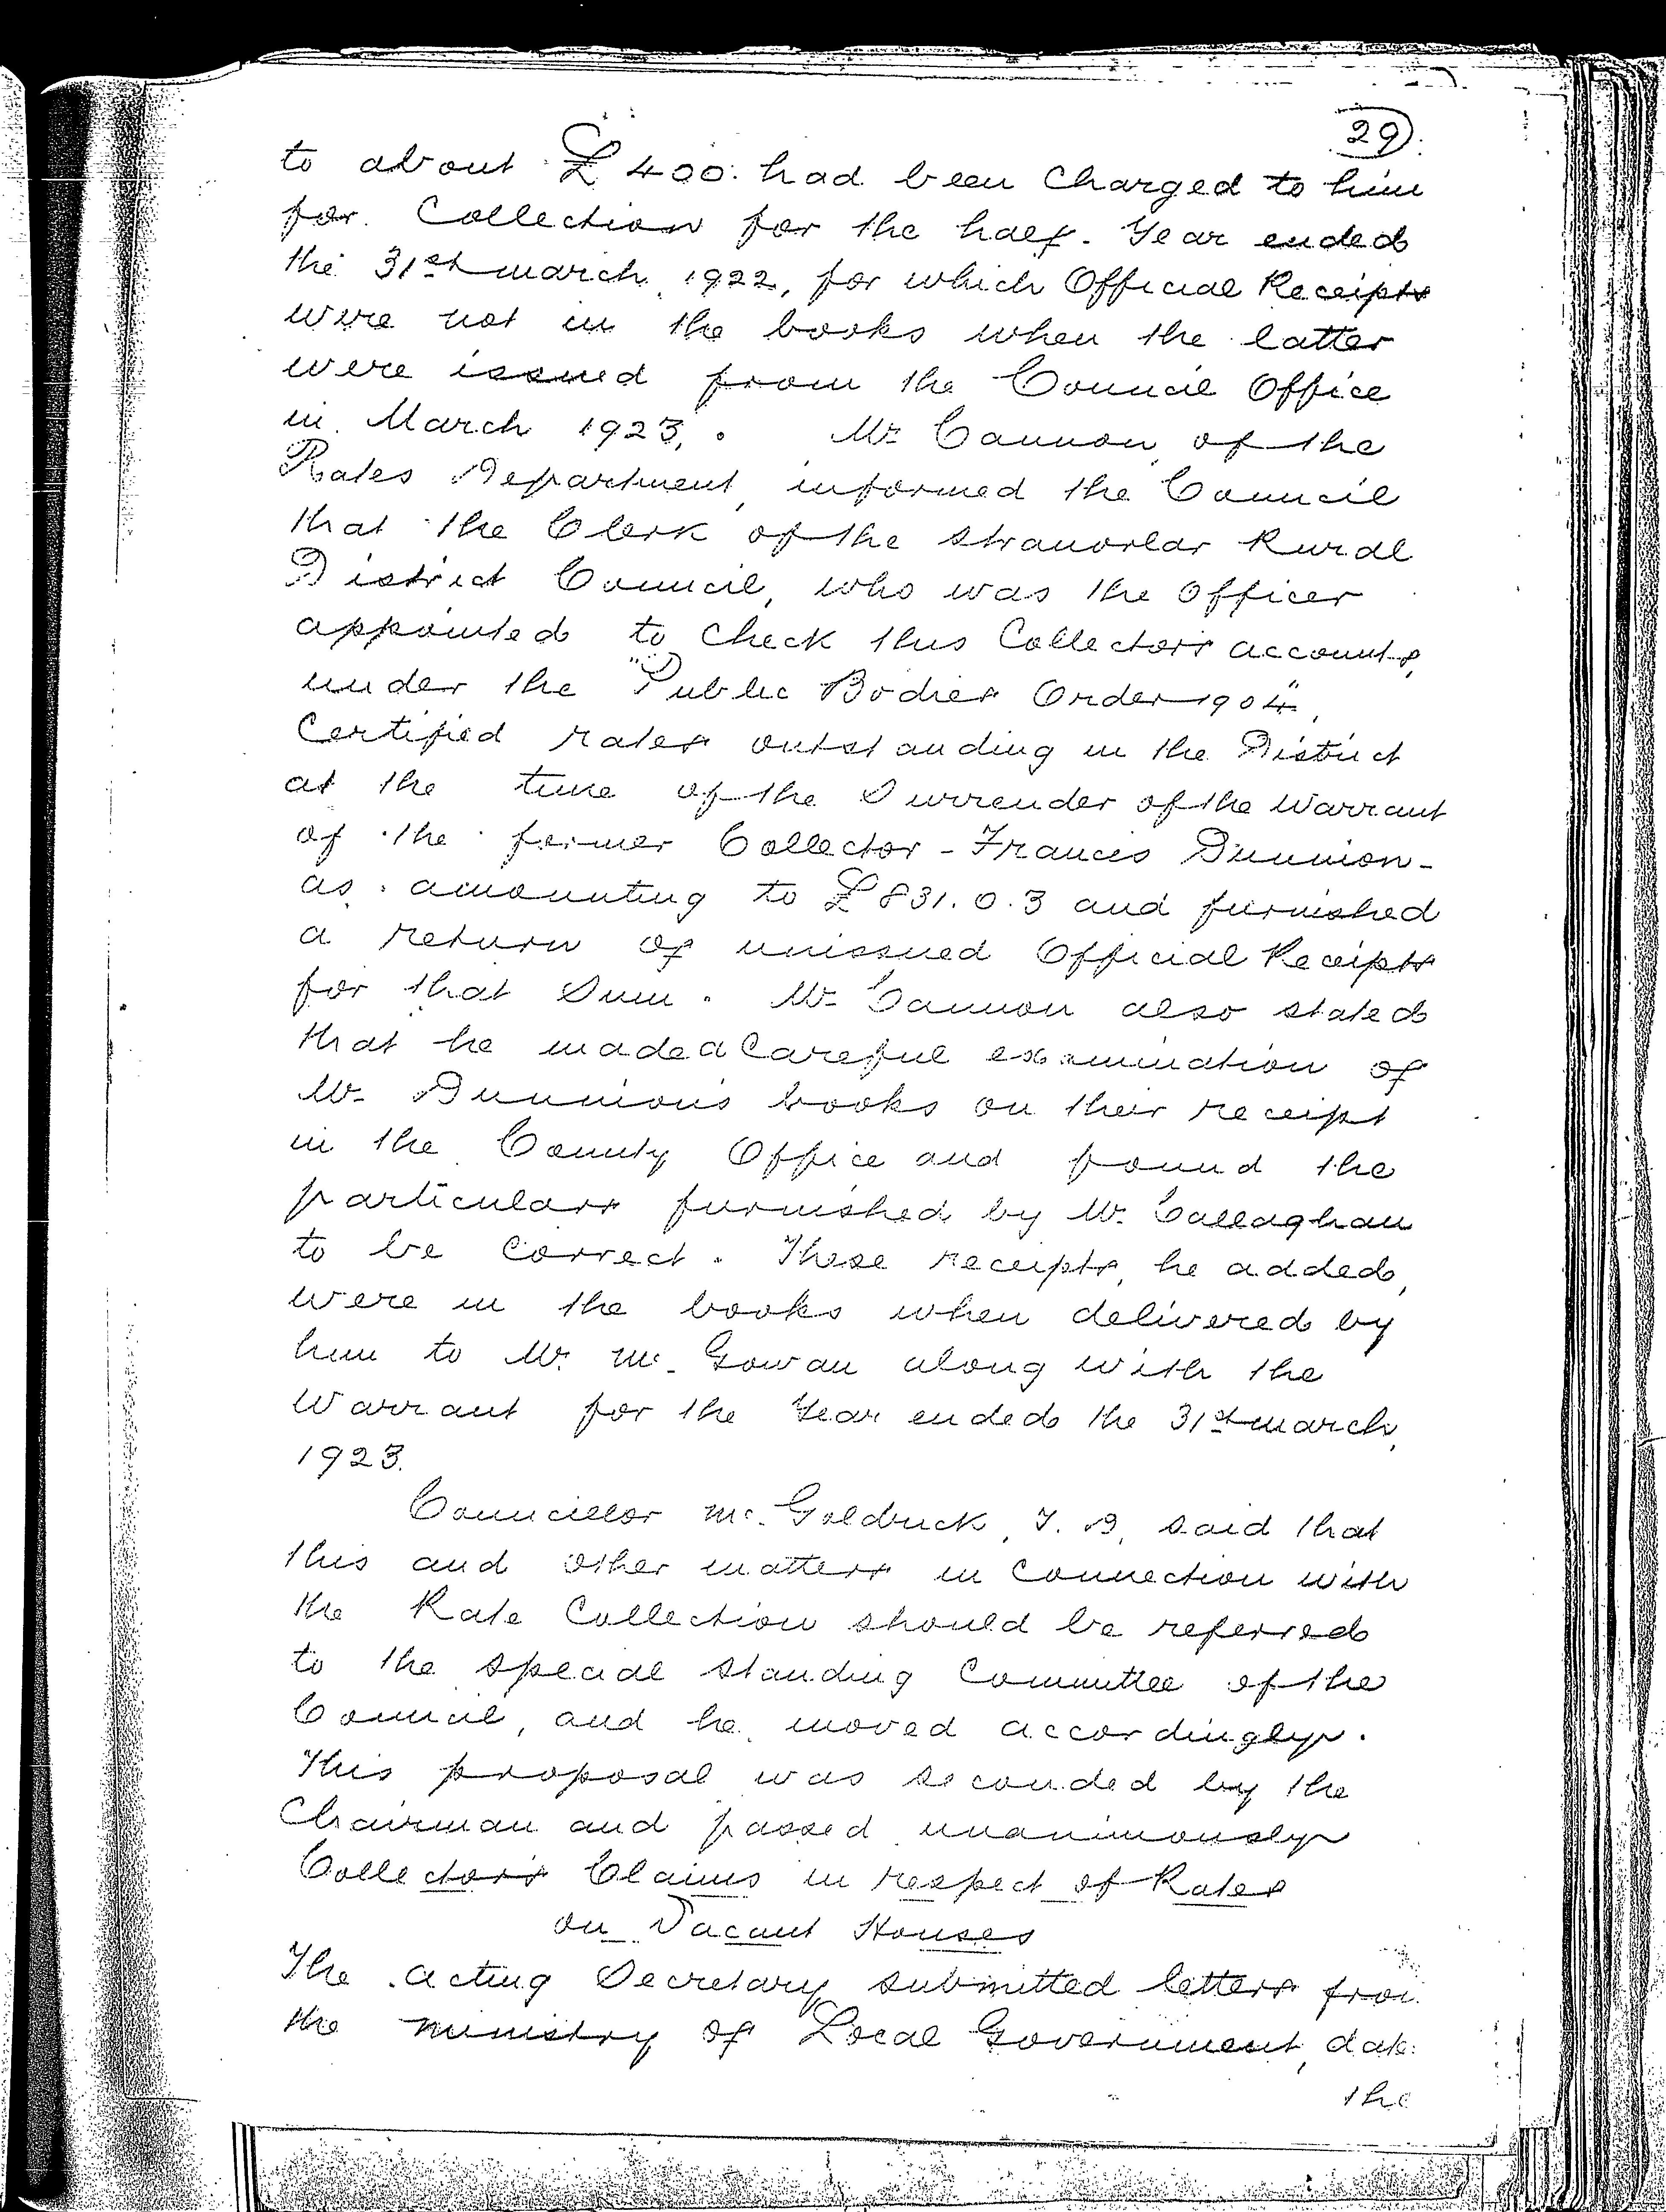 29
to about £400. had been Charged to him
for Collection for the half. Year ended
the 31st march 1922, for which Official Receipts
were not in the books when the latter
were issued from the Council Office
in March 1923. Mr Cannon, of the
Rates Department, informed the Council
that the Clerk of the Stranorlar Rural
District Council, who was the Officer
appointed to check this Collectors accounts,
under the "Public Bodies Order 1904",
Certified rates outstanding in the District
at the time of the Surrender of the Warrant
of the former Collector - Francis Bunnion -
as amounting to £831.0.3 and furnished
a return of unissued Official Receipts
for that Sum. Mr Cannon also stated
that he made a Careful examination of
Mr Bunnion's books on their receipt
in the County Office and found the
particulars furnished by Mr. Callaghan
to be correct. These receipts, he added,
were in the books when delivered by
him to Mr. Mc. Gowan along with the
Warrant for the Year ended the 31st march,
1923.
Councillor Mc. Goldrick, T.D, said that
this and other matters in Connection with
the Rate Collection should be referred
to the special standing Committee of the
Council, and he moved accordingly.
This proposal was seconded by the
Chairman and passed unanimously
Collectors Claims in respect of Rates
on Vacant Houses
The Acting Secretary submitted letters from
the ministry of Local Government, date
the